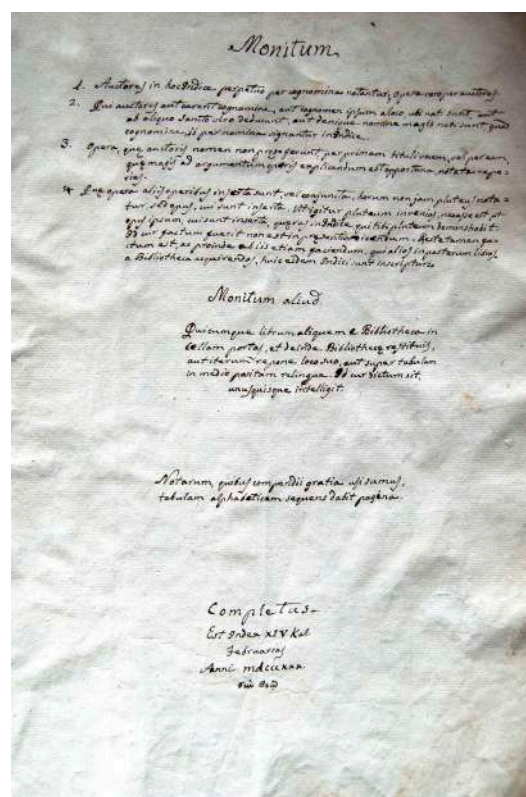 Monitum
1. Auctores in hoc Indice perpetuo per cognomina notantur, opera vero per auctores.
2. Qui auctores aut carent cognomine, aut cognomen ipsum a loco, ubi nati sunt, aut
ab aliquo Sancto viro deduxerunt, aut denique nomine magis noti sunt quam
cognomine, ii per nomina signantur in Indice.
3. Opera, quę auctoris nomen non pręseferunt, per primam tituli vocem, vel per eam,
quę magis ad argumentum operis explicandum est opportuna, notata repe-
ries.
4. Quę opera aliis operibus inserta sunt, vel conjuncta, horum non jam pluteus nota-
tur, sed opus, cui sunt inserta. Ut igitur pluteum invenias, necesse est, ut
opus ipsum, cui sunt inserta, quęras in Indice, qui tibi pluteum demonstrabit.
Id cur factum fuerit non est in pręsentia dicendum. Res tamen fa-
ctum est, ac proinde ab iis etiam faciendum, qui alios in posterum libros,
a Bibliotheca acquirendos, huic eidem Indici sunt inscripturi.
Monitum aliud
Quicumque librum aliquem e Bibliotheca in
cellam portas, et deinde Bibliothecę restituis,
aut iterum repone loco suo, aut super tabulam
in medio positam relinque. Id cur dictum sit,
unusquisque intelligit.
Notarum, quibus compendii gratia usi sumus,
tabulam alphabeticam sequens dabit pagina.
Completus
Est Index XIV Kal.
Februarias
Anni MDCCCXXX